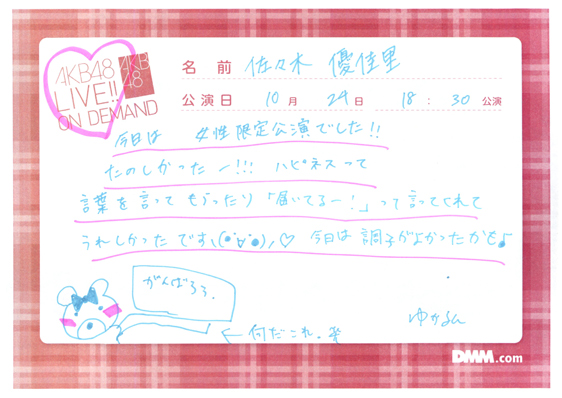 AKB48
LIVE!!
ON DEMAND
AKB
48
名前 佐々木 優佳里
公演日 10月 24日 18:30公演
今日は 女性限定公演でした!!
たのしかったー!!! ハピネスって
言葉を言ってもらったり「届いてるー!」って言ってくれて
うれしかったです、(●'∀'●)、♡ 今日は調子がよかったかも♪
がんばろう。
← 何だこれ。笑
ゆかるん
DMM.com